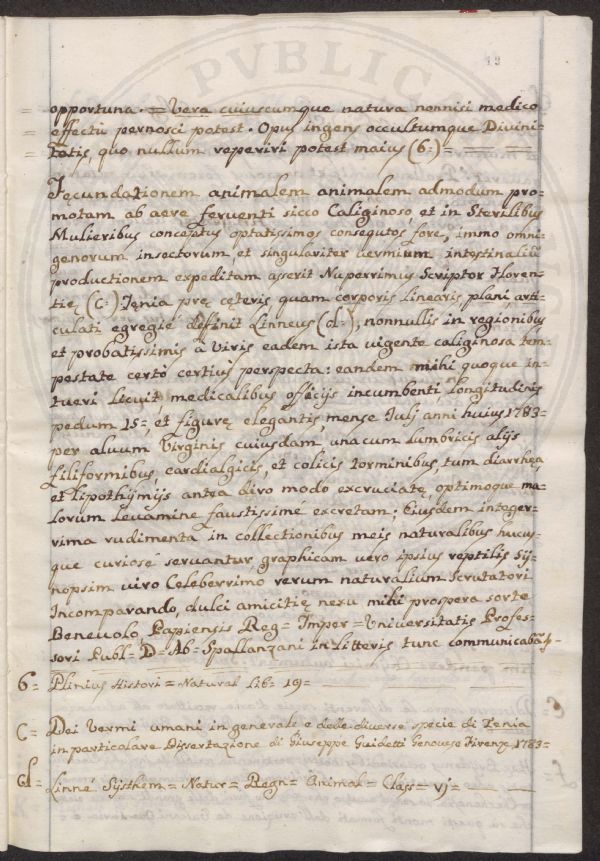 PVBLICA
19
opportuna. = Vera cuiuscumque natura nonnisi medico
= effectu pernosci potest. Opus ingens occultumque Divini=
= tatis, quo nullum reperiri potest maius (6=) = = =
Fęcundationem animalem animalem admodum pro=
motam ab aere ferventi sicco Caliginoso, et in Sterilibus
Mulieribus conceptus optatissimos consequtos fore, immo omni=
genorum insectorum, et singulariter vermium intestinaliũ
productionem expeditam asserit Nuperrimus Scriptor Floren=
tię, (C=) Tęnia prę cęteris quam corporis linearis, plani arti=
culati egregié definit Linneus (d=), nonnullis in regionibus
et probatissimis à Viris eadem ista vigente caliginosa tem=
pestate certò certiùs perspecta: eandem mihi quoque in=
tueri Licuit, medicalibus officijs incumbenti, Longitudinis
pedum 15=, et figurę elegantis, mense Iulij anni huius 1783=
per alvum Virginis cuiusdam unacum Lumbricis alijs
filiformibus cardialgicis, et colicis torminibus, tum diarrhęa,
et Lipothijmijs antea diro modo excruciatę, optimoque ma=
lorum Levamine faustissime excretam; Eiusdem integer=
rima rudimenta in collectionibus meis naturalibus hucus=
que curiosé servantur, graphicam vero ipsius reptilis Sij=
nopsim viro Celeberrimo rerum naturalium Scrutatori
Incomparando, dulci amicitię nexu mihi prospera sorte
Benevolo, Papiensis Reg= Imper= Universitatis Profes=
sori Publ= D= Ab= Spallanzani in Litteris tunc communicabã
6= Plinius Histori= Natural Lib= 19= = = =
C= Dei Vermi umani in generale e delle diverse specie di Tenia
in particolare Dissertazione di Giuseppe Guidetti Genovese Firenze 1783=
d= Linné Sijsthem= Natur= Regn= Animal= Class= vj=